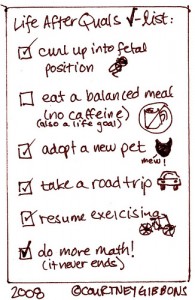 Life After Quals √-list:
curl up into fetal
position
eat a balanced meal
(no caffeine)
(also a life goal)
adopt a new pet
mew!
take a road trip
resume exercising
do more math!
(it never ends)
2008 ©COURTNEY GIBBONS